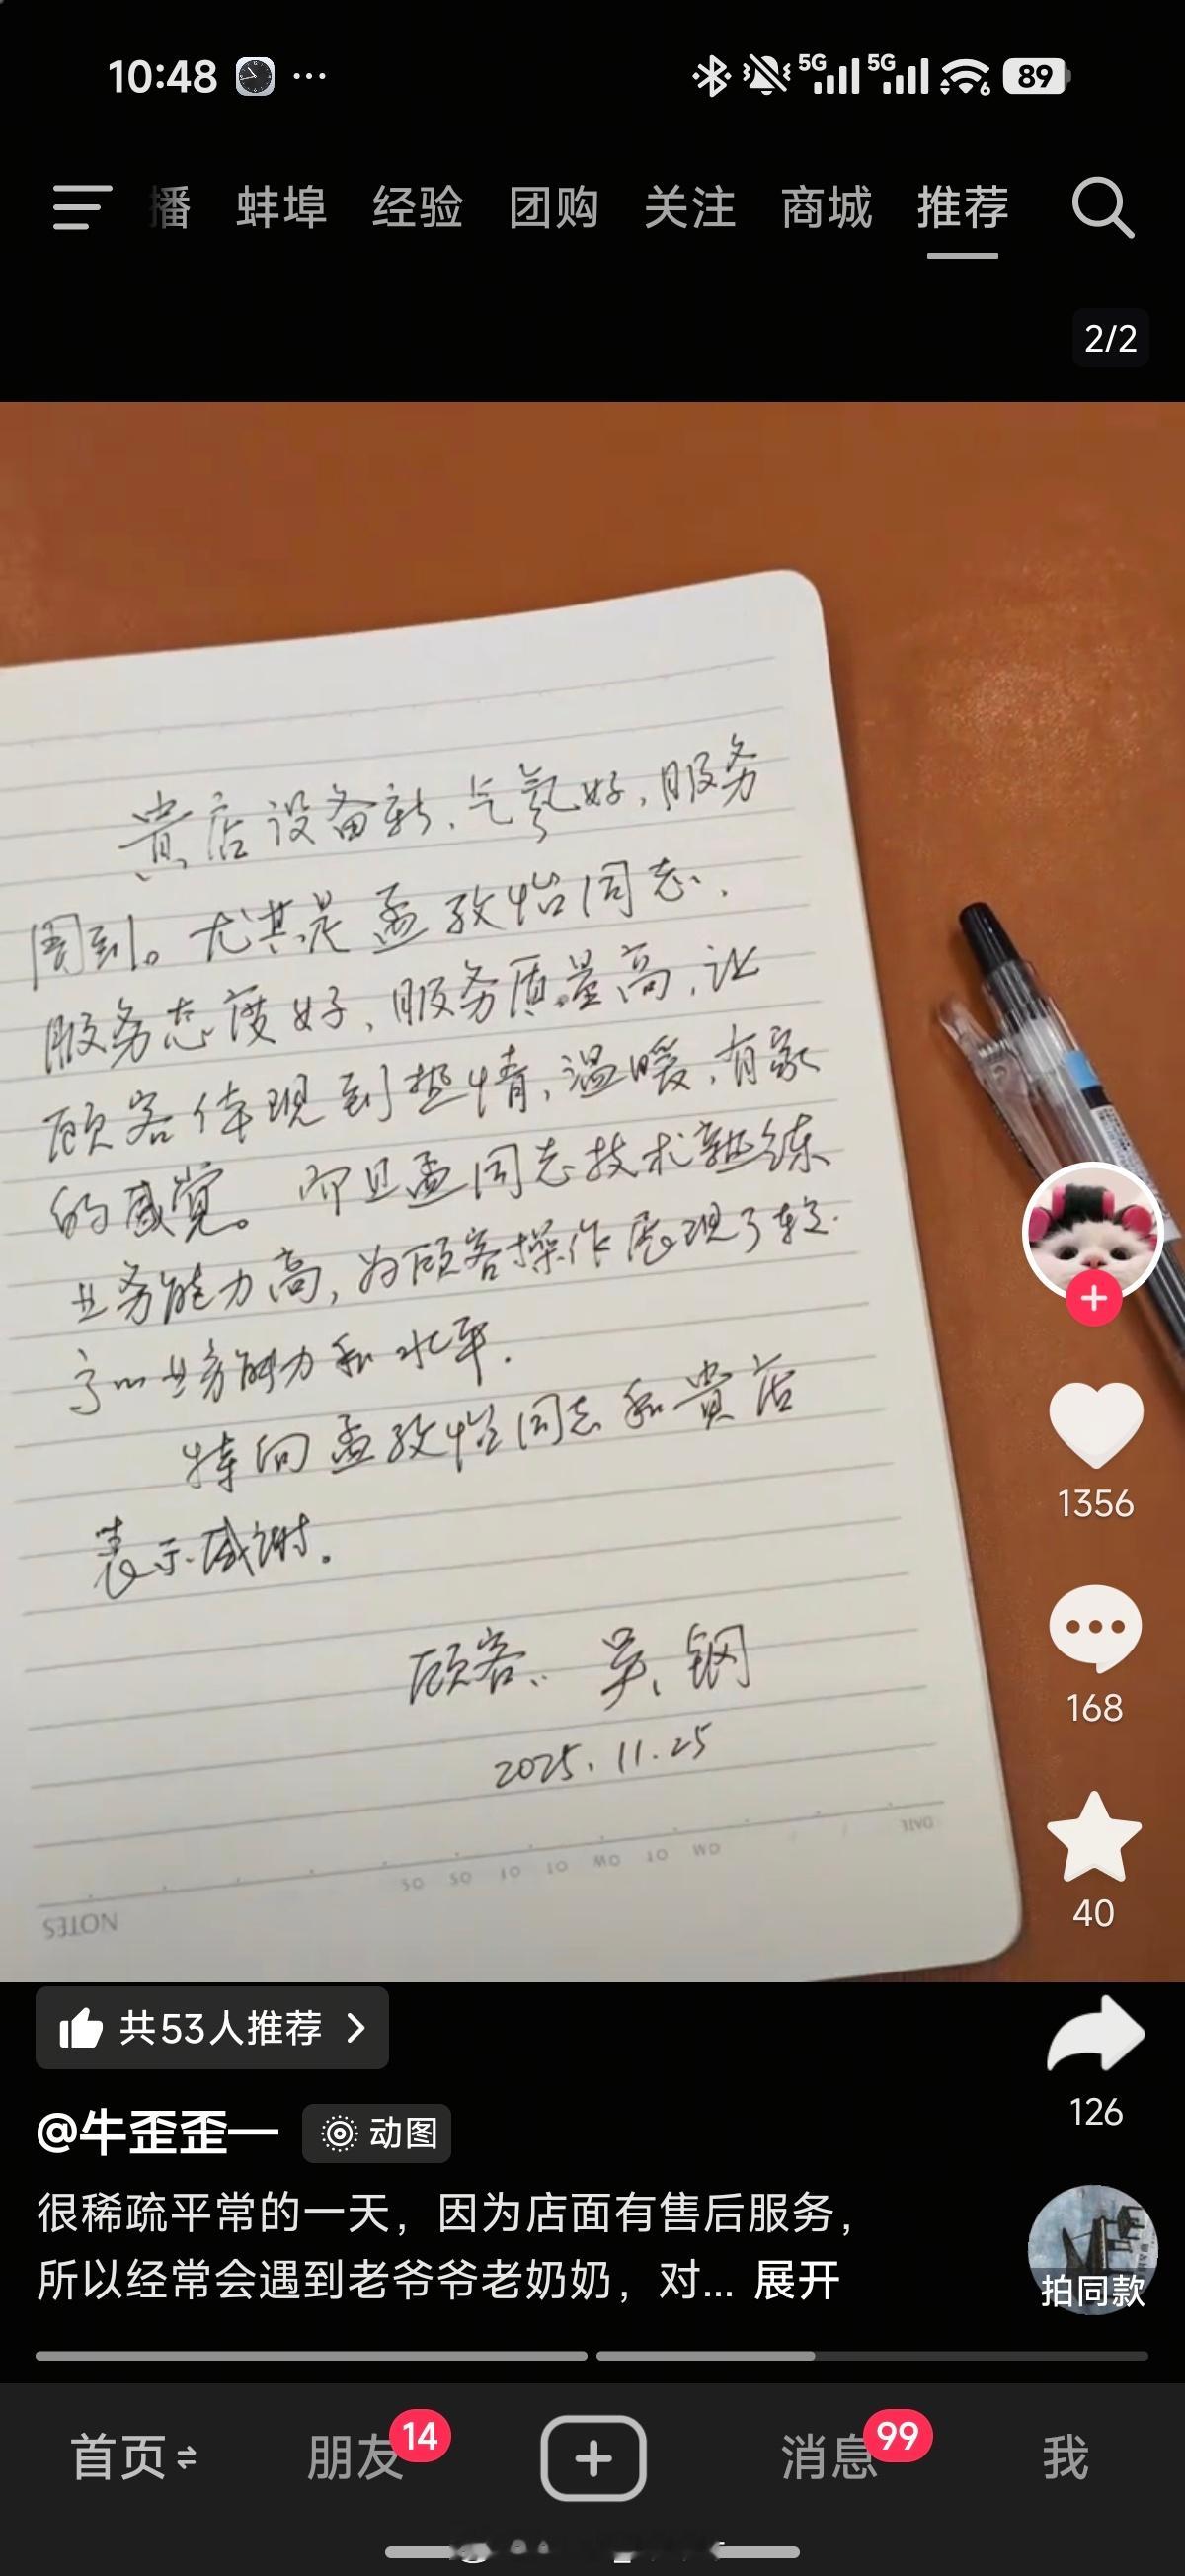 10:48
5G 5G 6 89
播 蚌埠 经验 团购 关注 商城 推荐
2/2
贵店设备新、气氛好,服务
周到。尤其是孟孜怡同志、
服务态度好,服务质量高,让
顾客体现到热情,温暖,有家
的感觉。而且孟同志技术熟练
业务能力高,为顾客操作展现了较
高的业务能力和水平.
特向孟孜怡同志和贵店
表示感谢.
顾客: 吴钢
2025.11.25
DATE
NOTES
1356
168
40
共53人推荐
126
@牛歪歪一 动图
很稀疏平常的一天,因为店面有售后服务,
所以经常会遇到老爷爷老奶奶,对... 展开
拍同款
首页 朋友 14 消息 99 我